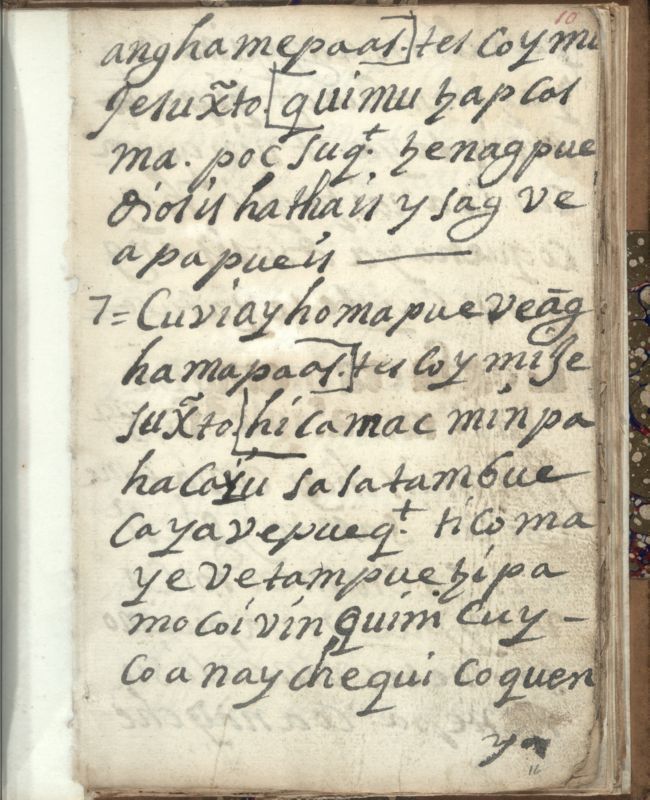 10
anghamepaas.] tes Coy mi
Jesux̃to. [quimu ɀap Cos
ma. poc suq.ᵗ ɀenagpue
diosis hathais y sag ve
apapueis —
7= Cuviay homa pue veãg
hamapaas.] tes Coy mi Je
sux̃to [hicamac min pa
ha Coiu sasatambue
Cayavepueq.ᵗ ticoma
ye vetampue ɀipa
mocoi vin quim Cuy –
Coanay chequi Coquen
ya